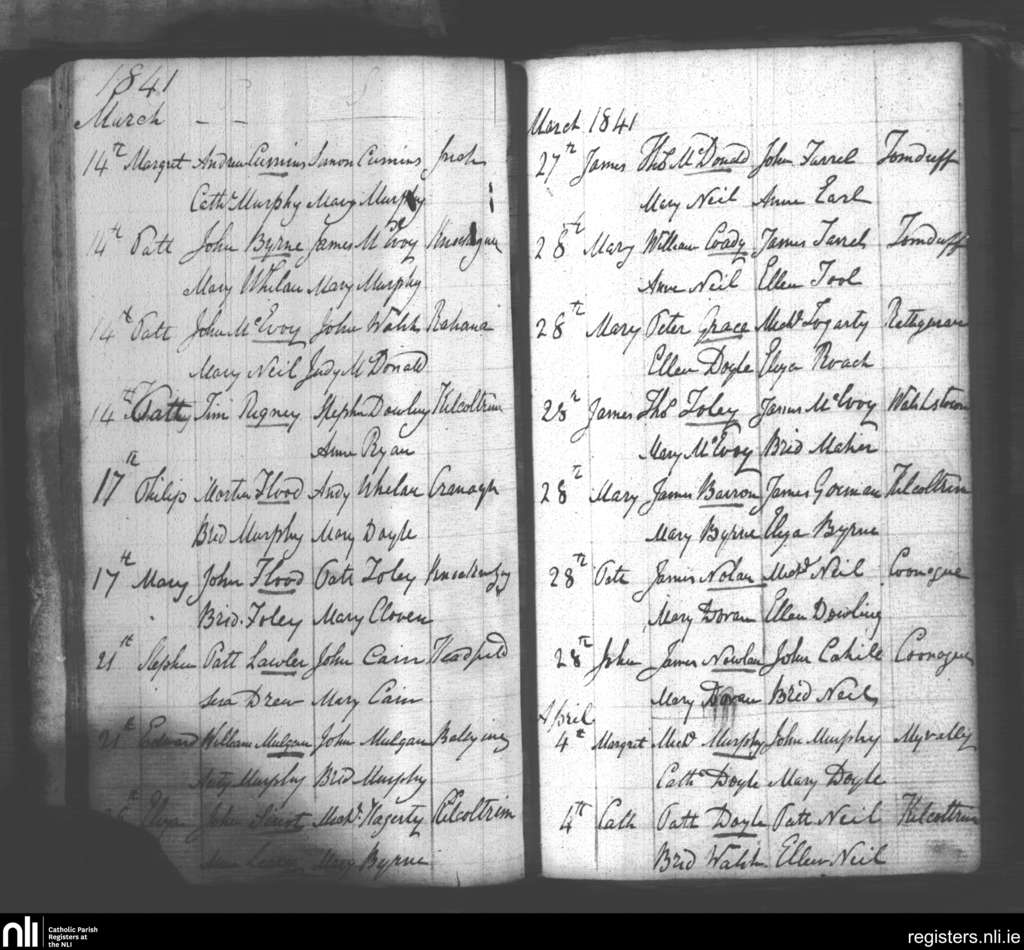 1841
March
14th Margret Andrew Cumins Simon Cumins
Cathe Murphy Mary Murphy
14th Patt John Byrne James McEvoy
Mary Whelan Mary Murphy
14th Patt John McEvoy John Walsh Rahana
Mary Neil Judy McDonald
14th Tim Rigney Stephen Dowling Kilcoltrim
Anne Ryan
17th Philip Morten Flood Andy Whelan Cranagh
Brid Murphy Mary Doyle
17th Mary John Flood Patt Foley
Brid. Foley Mary Cloven
21st Stephen Patt Lawler John Cain
Drew Mary Cain
21st Edward William Mulgan John Mulgan
Murphy Brid Murphy
Eliza John Sinot Michl Hagerty Kilcoltrim
Mary Byrne
March 1841
27th James Thos McDonald John Farrel Tomduff
Mary Neil Anne Earl
28th Mary William Coady James Farrel Tomduff
Anne Neil Ellen Tool
28th Mary Peter Grace Michl Fogarty
Ellen Doyle Eliza Roach
28th James Thos Foley James McEvoy Walshstown
Mary McEvoy Brid Maher
28th Mary James Barron James Gorman Kilcoltrim
Mary Byrne Eliza Byrne
28th Patt James Nolan Michl Neil Coonogue
Mary Doran Ellen Dowling
28th John James Nowlan John Cahill Coonogue
Mary Doran Brid Neil
April
4th Margret Michl Murphy John Murphy Myvally
Cathe Doyle Mary Doyle
4th Cath Patt Doyle Patt Neil Kilcoltrim
Brid Walsh Ellen Neil
nli Catholic Parish
Registers at
the NLI
registers.nli.ie